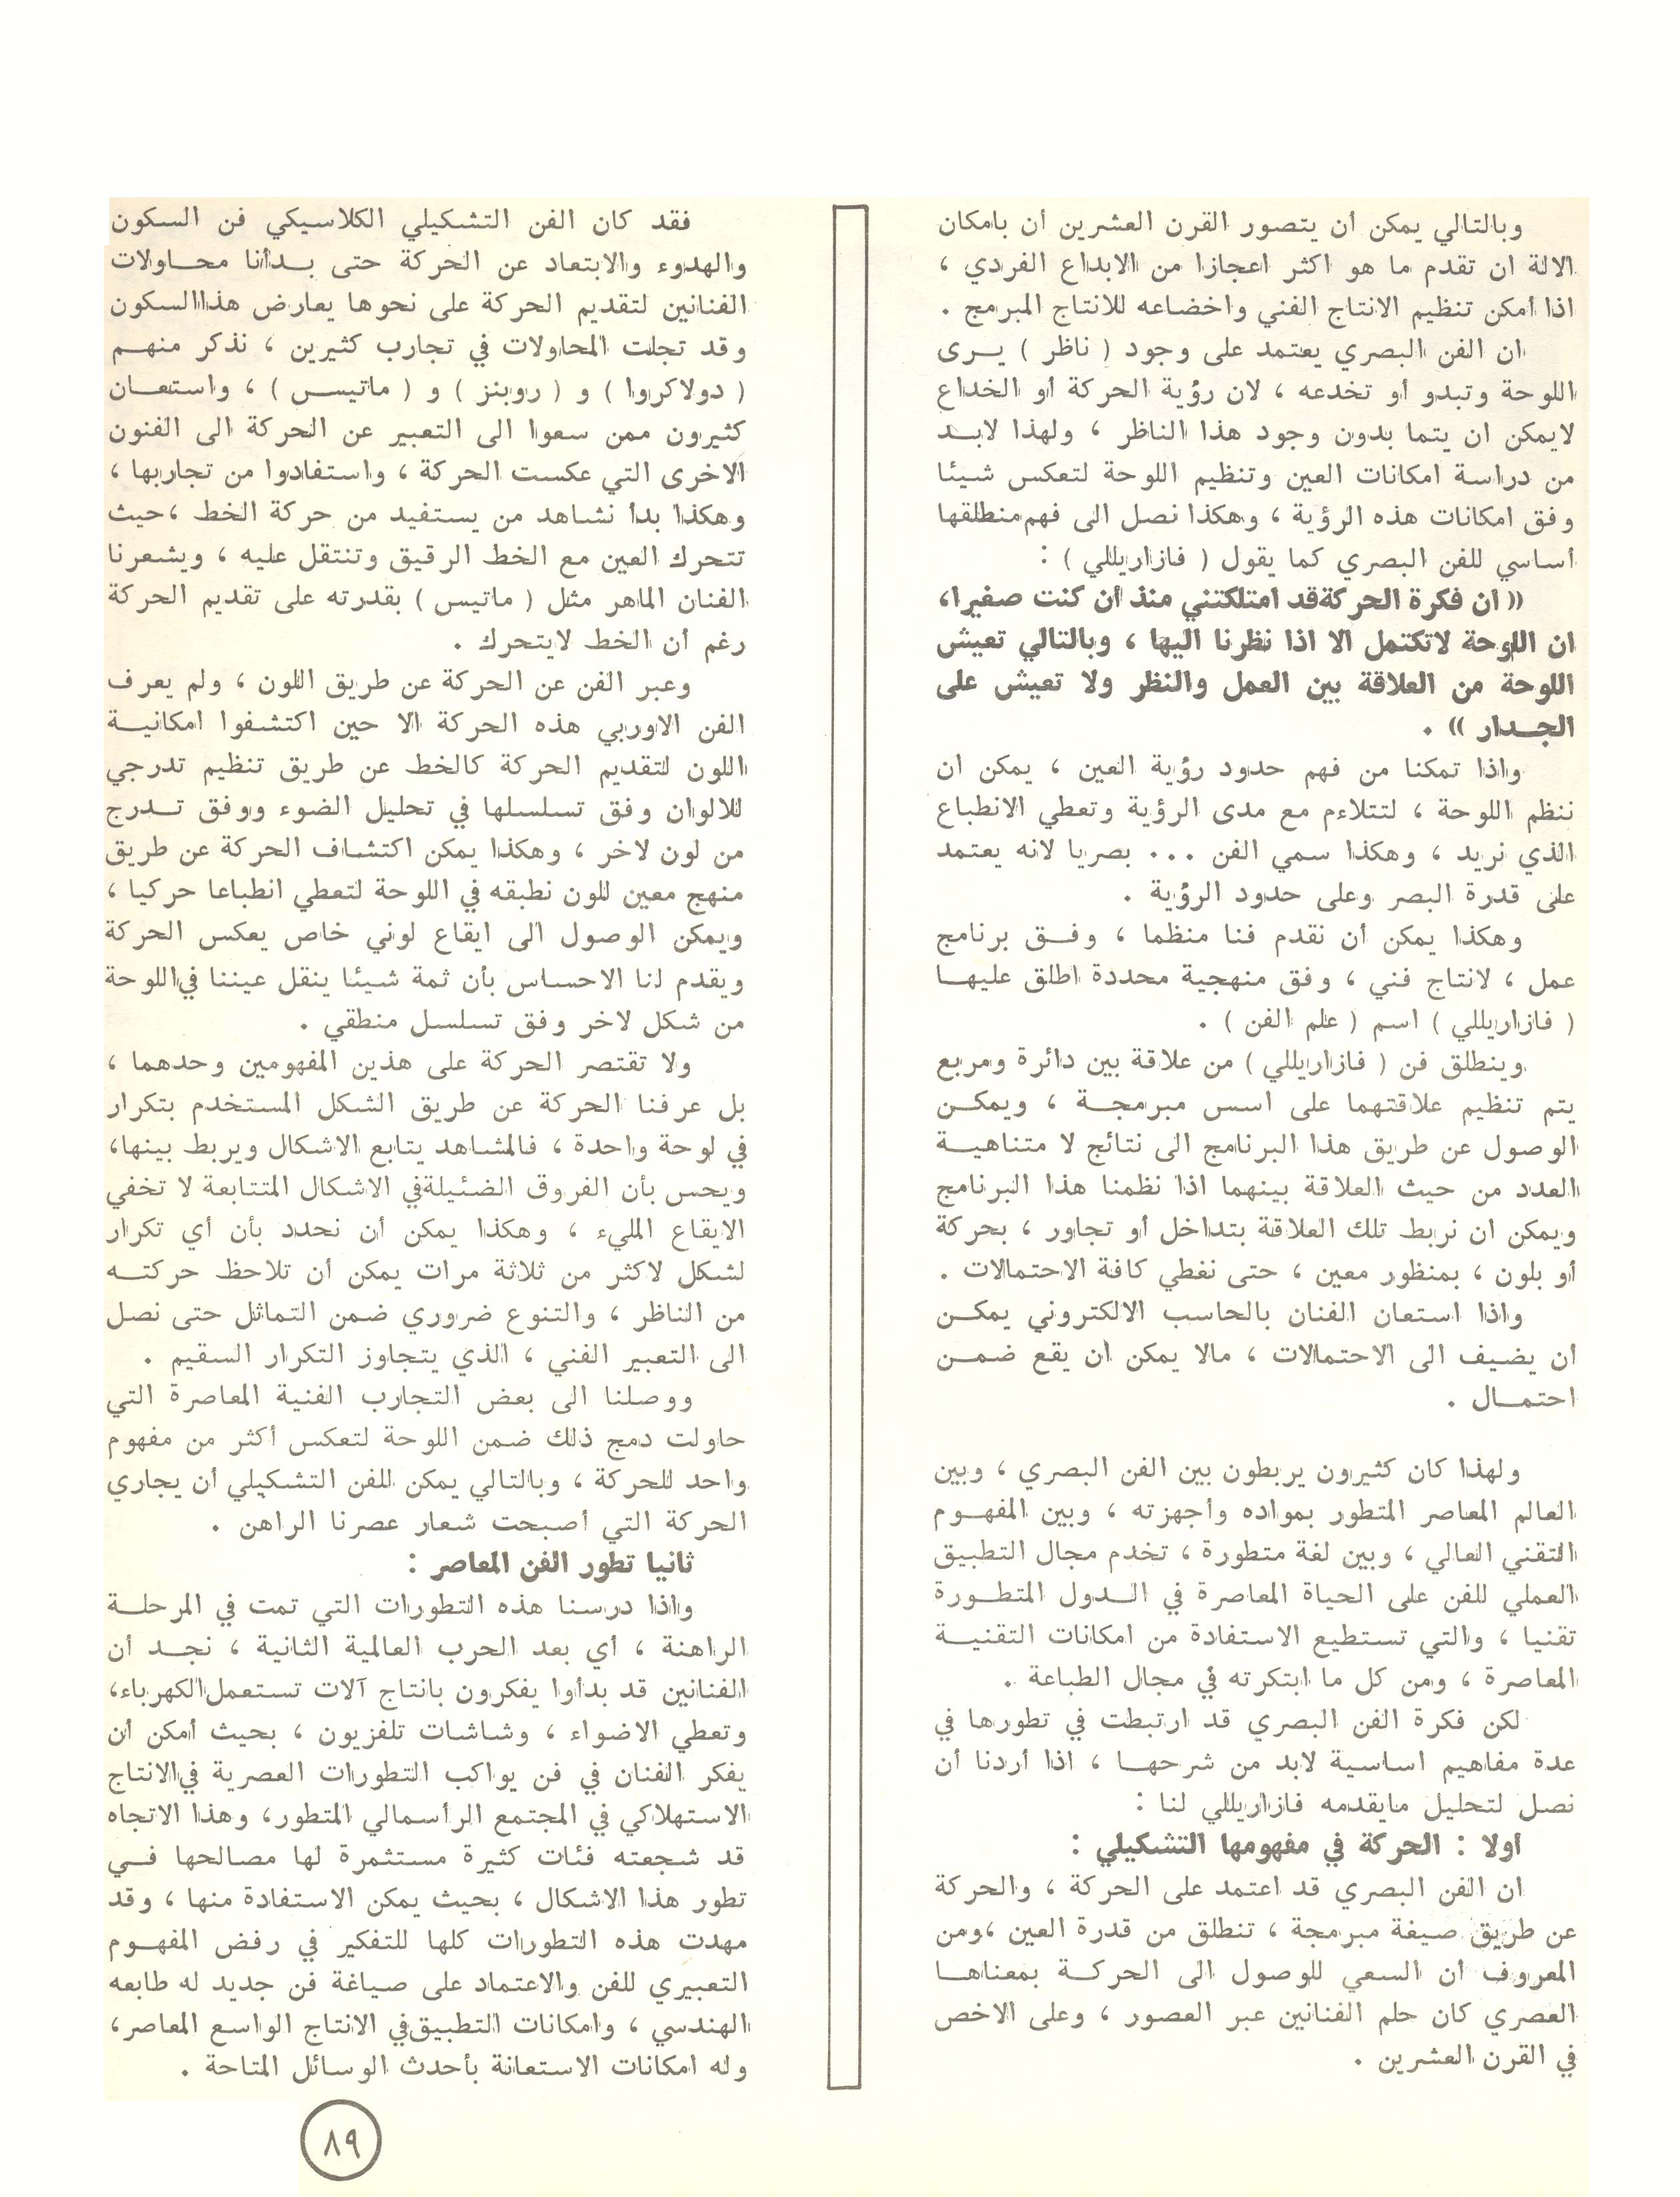 وبالتالي يمكن أن يتصور القرن العشرين أن بامكان
الالة ان تقدم ما هو اكثر اعجازا من الابداع الفردي ،
اذا أمكن تنظيم الانتاج الفني واخضاعه للانتاج المبرمج .
ان الفن البصري يعتمد على وجود ( ناظر ) يــرى
اللوحة وتبدو أو تخدعه ، لان رؤية الحركة أو الخداع
لايمكن ان يتما بدون وجود هذا الناظر ، ولهذا لابــد
من دراسة امكانات العين وتنظيم اللوحة لتعكس شيئا
وفق امكانات هذه الرؤية ، وهكذا نصل الى فهم منطلقها
أساسي للفن البصري كما يقول ( فازاريللي ) :
(( ان فكرة الحركة قد امتلكتني منذ أن كنت صغيرا،
ان اللوحة لاتكتمل الا اذا نظرنا اليها ، وبالتالي تعيش
اللوحة من العلاقة بين العمل والنظر ولا تعيش على
الجــدار )) .
واذا تمكنا من فهم حدود رؤية العين ، يمكن ان
ننظم اللوحة ، لتتلاءم مع مدى الرؤية وتعطي الانطباع
الذي نريد ، وهكذا سمي الفن ... بصريا لانه يعتمد
على قدرة البصر وعلى حدود الرؤية .
وهكذا يمكن أن نقدم فنا منظما ، وفــق برنامج
عمل ، لانتاج فني ، وفق منهجية محددة اطلق عليهــا
( فازاريللي ) اسم ( علم الفن ) .
وينطلق فن ( فازاريللي ) من علاقة بين دائرة ومربع
يتم تنظيم علاقتهما على اسس مبرمجــة ، ويمكــن
الوصول عن طريق هذا البرنامج الى نتائج لا متناهيــة
العدد من حيث العلاقة بينهما اذا نظمنا هذا البرنامج
ويمكن ان نربط تلك العلاقة بتداخل أو تجاور ، بحركة
أو بلون ، بمنظور معين ، حتى نغطي كافة الاحتمالات .
واذا استعان الفنان بالحاسب الالكتروني يمكــن
أن يضيف الى الاحتمالات ، مالا يمكن أن يقع ضمــن
احتمــال .
ولهذا كان كثيرون يربطون بين الفن البصري ، وبين
العالم المعاصر المتطور بمواده وأجهزته ، وبين المفهــوم
التقني العالي ، وبين لغة متطورة ، تخدم مجال التطبيق
العملي للفن على الحياة المعاصرة في الــدول المتطــورة
تقنيا ، والتي تستطيع الاستفادة من امكانات التقنيــة
المعاصرة ، ومن كل ما ابتكرته في مجال الطباعة .
لكن فكرة الفن البصري قد ارتبطت في تطورها في
عدة مفاهيم اساسية لابد من شرحهــا ، اذا أردنا أن
نصل لتحليل مايقدمه فازاريللي لنا :
أولا : الحركة في مفهومها التشكيلي :
ان الفن البصري قد اعتمد على الحركة ، والحركة
عن طريق صيغة مبرمجة ، تنطلق من قدرة العين ،ومن
المعروف ان السعي للوصول الى الحركــة بمعناهــا
العصري كان حلم الفنانين عبر العصور ، وعلى الاخص
في القرن العشرين .
فقد كان الفن التشكيلي الكلاسيكي فن السكون
والهدوء والابتعاد عن الحركة حتى بــدأنا محــاولات
الفنانين لتقديم الحركة على نحوها يعارض هذا السكون
وقد تجلت المحاولات في تجارب كثيرين ، نذكر منهــم
( دولاكروا ) و ( روبنز ) و ( ماتيــس ) ، واستعــان
كثيرون ممن سعوا الى التعبير عن الحركة الى الفنون
الاخرى التي عكست الحركة ، واستفادوا من تجاربها ،
وهكذا بدأ نشاهد من يستفيد من حركة الخط ،حيث
تتحرك العين مع الخط الرقيق وتنتقل عليه ، ويشعرنا
الفنان الماهر مثل ( ماتيس ) بقدرته على تقديم الحركة
رغم أن الخط لايتحرك .
وعبر الفن عن الحركة عن طريق اللون ، ولم يعرف
الفن الاوربي هذه الحركة الا حين اكتشفوا امكانيــة
اللون لتقديم الحركة كالخط عن طريق تنظيم تدرجي
للالوان وفق تسلسلها في تحليل الضوء ووفق تــدرج
من لون لاخر ، وهكذا يمكن اكتشاف الحركة عن طريق
منهج معين للون نطبقه في اللوحة لتعطي انطباعا حركيا ،
ويمكن الوصول الى ايقاع لوني خاص يعكس الحركة
ويقدم لنا الاحساس بأن ثمة شيئا ينقل عيننا في اللوحة
من شكل لاخر وفق تسلسل منطقي .
ولا تقتصر الحركة على هذين المفهومين وحدهما ،
بل عرفنا الحركة عن طريق الشكل المستخدم بتكرار
في لوحة واحدة ، فالمشاهد يتابع الاشكال ويربط بينها،
ويحس بأن الفروق الضئيلة في الاشكال المتتابعة لا تخفي
الايقاع المليء ، وهكذا يمكن أن نحدد بأن أي تكرار
لشكل لاكثر من ثلاثة مرات يمكن أن تلاحظ حركتــه
من الناظر ، والتنوع ضروري ضمن التماثل حتى نصل
الى التعبير الفني ، الذي يتجاوز التكرار السقيم .
ووصلنا الى بعض التجارب الفنية المعاصرة التي
حاولت دمج ذلك ضمن اللوحة لتعكس أكثر من مفهوم
واحد للحركة ، وبالتالي يمكن للفن التشكيلي أن يجاري
الحركة التي أصبحت شعار عصرنا الراهن .
ثانيا تطور الفن المعاصر :
واذا درسنا هذه التطورات التي تمت في المرحلــة
الراهنة ، أي بعد الحرب العالمية الثانية ، نجــد أن
الفنانين قد بدأوا يفكرون بانتاج آلات تستعمل الكهرباء،
وتعطي الاضواء ، وشاشات تلفزيون ، بحيث أمكن أن
يفكر الفنان في فن يواكب التطورات العصرية في الانتاج
الاستهلاكي في المجتمع الرأسمالي المتطور، وهذا الاتجاه
قد شجعته فئات كثيرة مستثمرة لها مصالحها فــي
تطور هذا الاشكال ، بحيث يمكن الاستفادة منها ، وقد
مهدت هذه التطورات كلها للتفكير في رفض المفهــوم
التعبيري للفن والاعتماد على صياغة فن جديد له طابعه
الهندسي ، وامكانات التطبيق في الانتاج الواسع المعاصر،
وله امكانات الاستعانة بأحدث الوسائل المتاحة .
٨٩